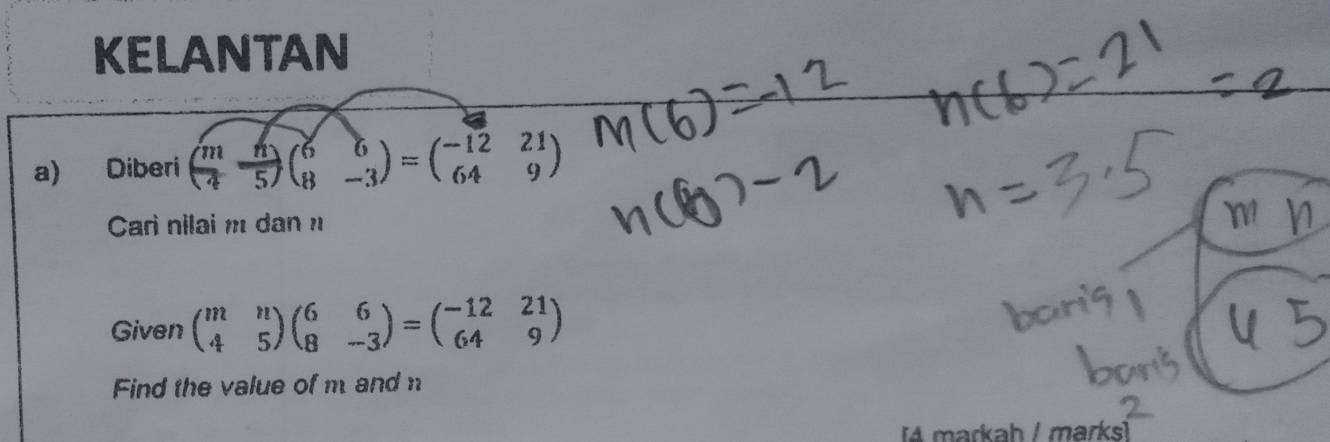 KELANTAN
a) Diberi (m n / 4 5)(6 6 / 8 -3) = (-12 21 / 64 9)
Cari nilai m dan n
Given (m n / 4 5)(6 6 / 8 -3) = (-12 21 / 64 9)
Find the value of m and n
[4 markah / marks]
m(6) = -12
n(6) = 21
= 2
n = 3.5
m n
baris 1
4 5
baris 2